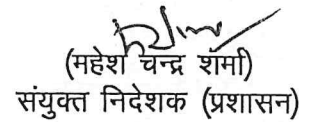 (महेश चन्द्र शर्मा)
संयुक्त निदेशक (प्रशासन)